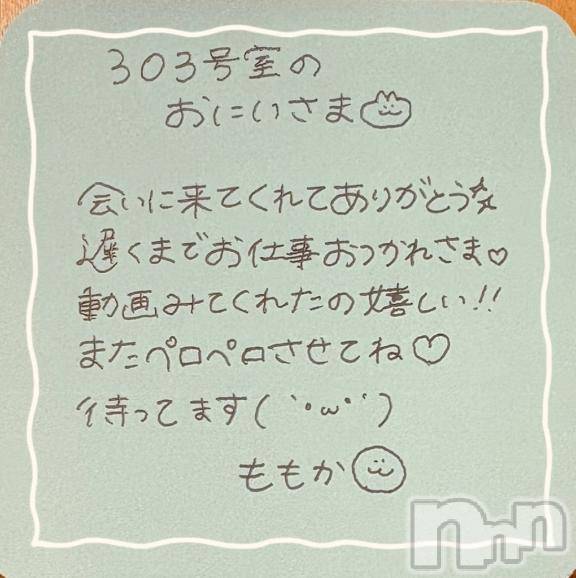 303号室の
おにいさま
会いに来てくれてありがとう
遅くまでお仕事おつかれさま♡
動画みてくれたの嬉しい!!
またペロペロさせてね♡
待ってます(｀･ω･´)
ももか
nnn